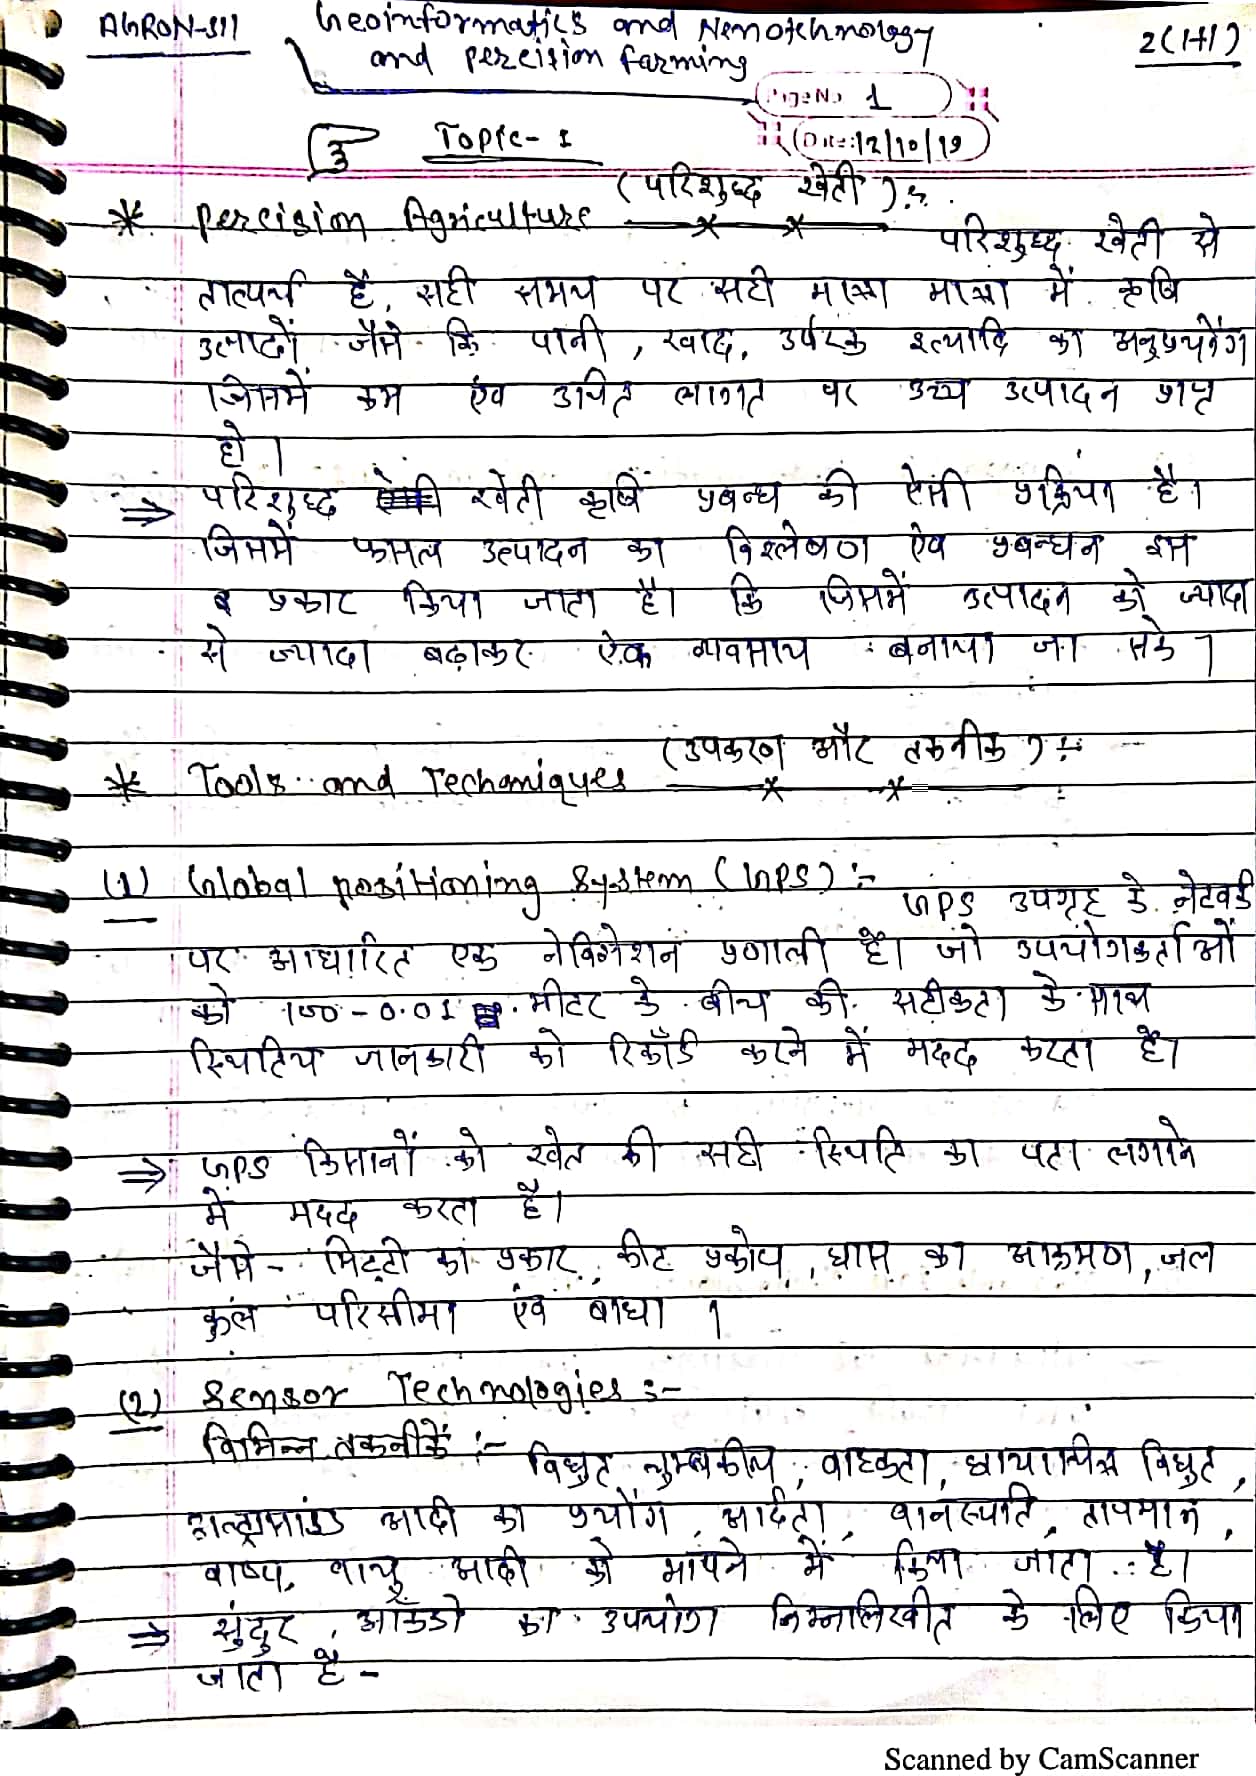 AGRON-311
Geoinformatics and Nemotechnology
and percision farming
2(1+1)
Page No. 1
Date: 12/10/19
Topic- 1
(परिशुद्ध खेती) :-
* Percision Agriculture
परिशुद्ध खेती से
तात्पर्य है, सही समय पर सही मात्रा मात्रा में कृषि
उत्पादों जैसे कि पानी, खाद, उर्वरक इत्यादि का अनुप्रयोग
जिसमें कम एंव उचित लागत पर उच्च उत्पादन प्राप्त
हो ।
⇒ परिशुद्ध खेती कृषि प्रबन्ध की ऐसी प्रक्रिया है।
जिसमें फसल उत्पादन का विश्लेषण ऐव प्रबन्धन इस
प्रकार किया जाता है। कि जिसमें उत्पादन को ज्यादा
से ज्यादा बढ़ाकर ऐक व्यवसाय बनाया जा सके ।
(उपकरण और तकनीक) :-
* Tools and Techaniques
(1) Global positioning System (GPS) :-
GPS उपगृह के नेटवर्क
पर आधारित एक नेविगेशन प्रणाली है। जो उपयोगकर्ताओं
को 100-0.01 मीटर के बीच की सटीकता के साथ
स्थितिय जानकारी को रिकॉर्ड करने में मदद करता है।
⇒ GPS किसानों को खेत की सही स्थिति का पता लगाने
में मदद करता है।
जैसे - मिट्टी का प्रकार, कीट प्रकोप, घास का आक्रमण, जल
कुल परिसीमा एंव बाधा ।
(2) Sensor Technologies :-
विभिन्न तकनीकें :-
विधुत चुम्बकीय, वाहकता, छायाचित्र विधुत,
अल्ट्रासांउड आदी का प्रयोग, आर्दता, वानस्पति, तापमान,
वाष्प, वायू आदी को मापने में किया जाता है।
⇒ सुंदुर आँकडो का उपयोग निम्नलिखीत के लिए किया
जाता है -
Scanned by CamScanner